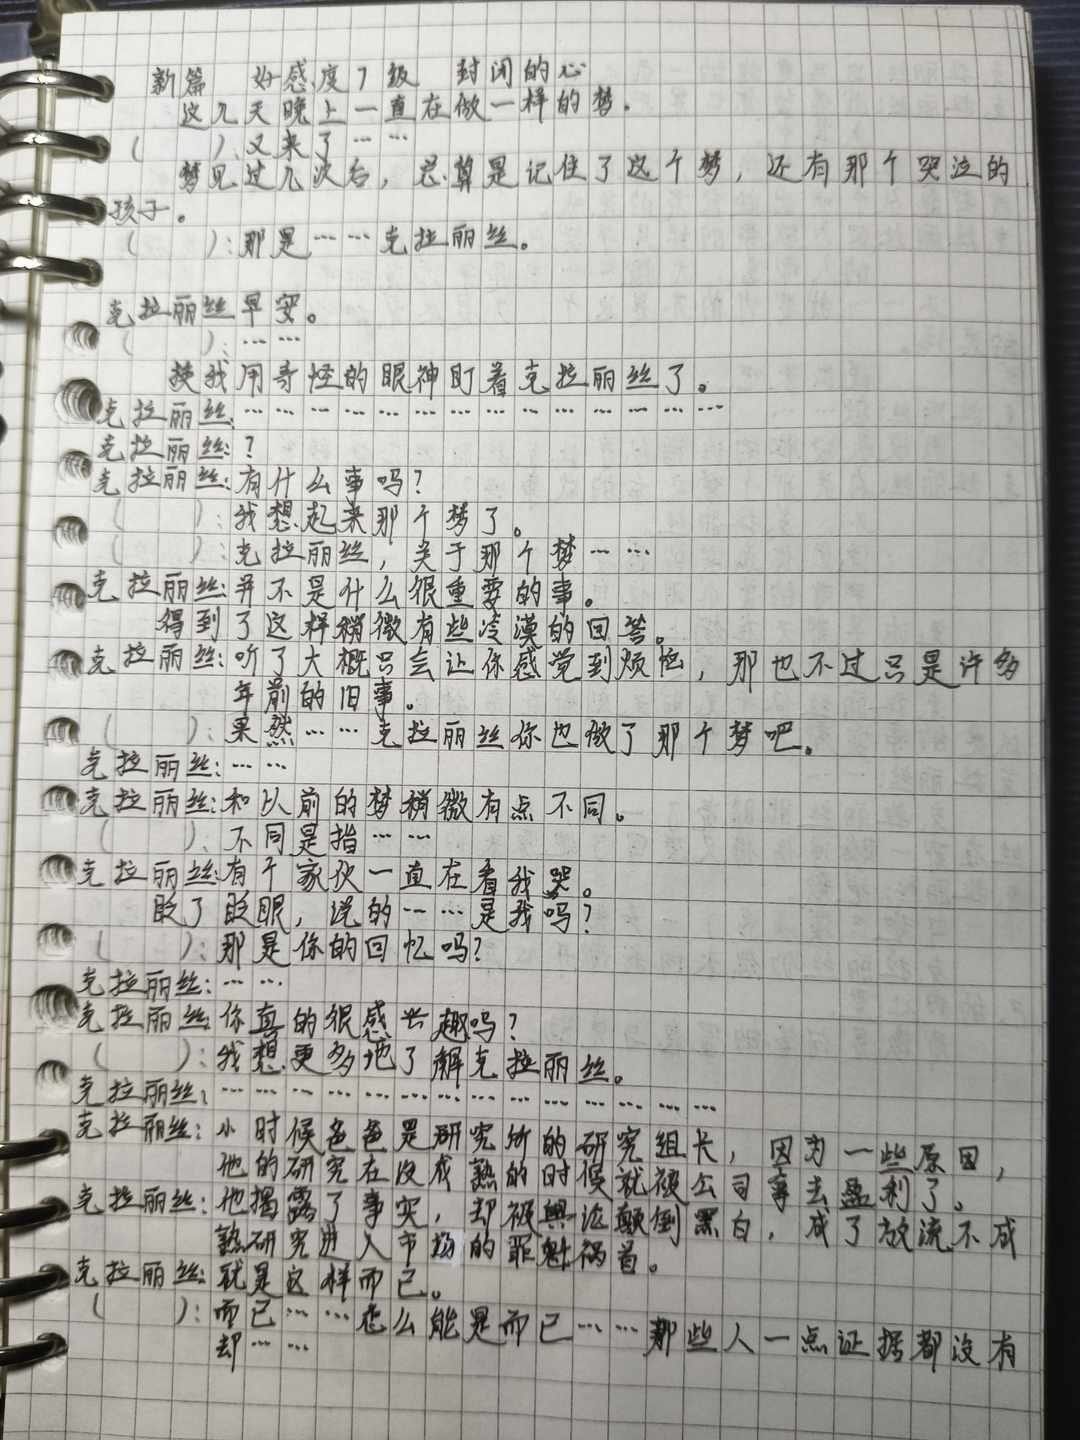 新篇 好感度7级 封闭的心
这几天晚上一直在做一样的梦.
( ):又来了……
梦见过几次后，总算是记住了这个梦，还有那个哭泣的
孩子。
( ):那是……克拉丽丝。
克拉丽丝早安。
( ):……
换我用奇怪的眼神盯着克拉丽丝了。
克拉丽丝:…………………………………
克拉丽丝:?
克拉丽丝:有什么事吗?
( ):我想起来那个梦了。
( ):克拉丽丝，关于那个梦……
克拉丽丝:并不是什么很重要的事。
得到了这样稍微有些冷漠的回答。
克拉丽丝:听了大概只会让你感觉到烦恼，那也不过只是许多
年前的旧事。
( ):果然……克拉丽丝你也做了那个梦吧。
克拉丽丝:……
克拉丽丝:和以前的梦稍微有点不同。
( ):不同是指……
克拉丽丝:有个家伙一直在看我哭。
眨了眨眼，说的……是我吗?
( ):那是你的回忆吗?
克拉丽丝:……
克拉丽丝:你真的很感兴趣吗?
( ):我想更多地了解克拉丽丝。
克拉丽丝:…………………………………
克拉丽丝:小时候爸爸是研究所的研究组长，因为一些原因，
他的研究在没成熟的时候就被公司拿去盈利了。
克拉丽丝:他揭露了事实，却被舆论颠倒黑白，成了放流不成
熟研究进入市场的罪魁祸首。
克拉丽丝:就是这样而已。
( ):而已……怎么能是而已……那些人一点证据都没有
却……